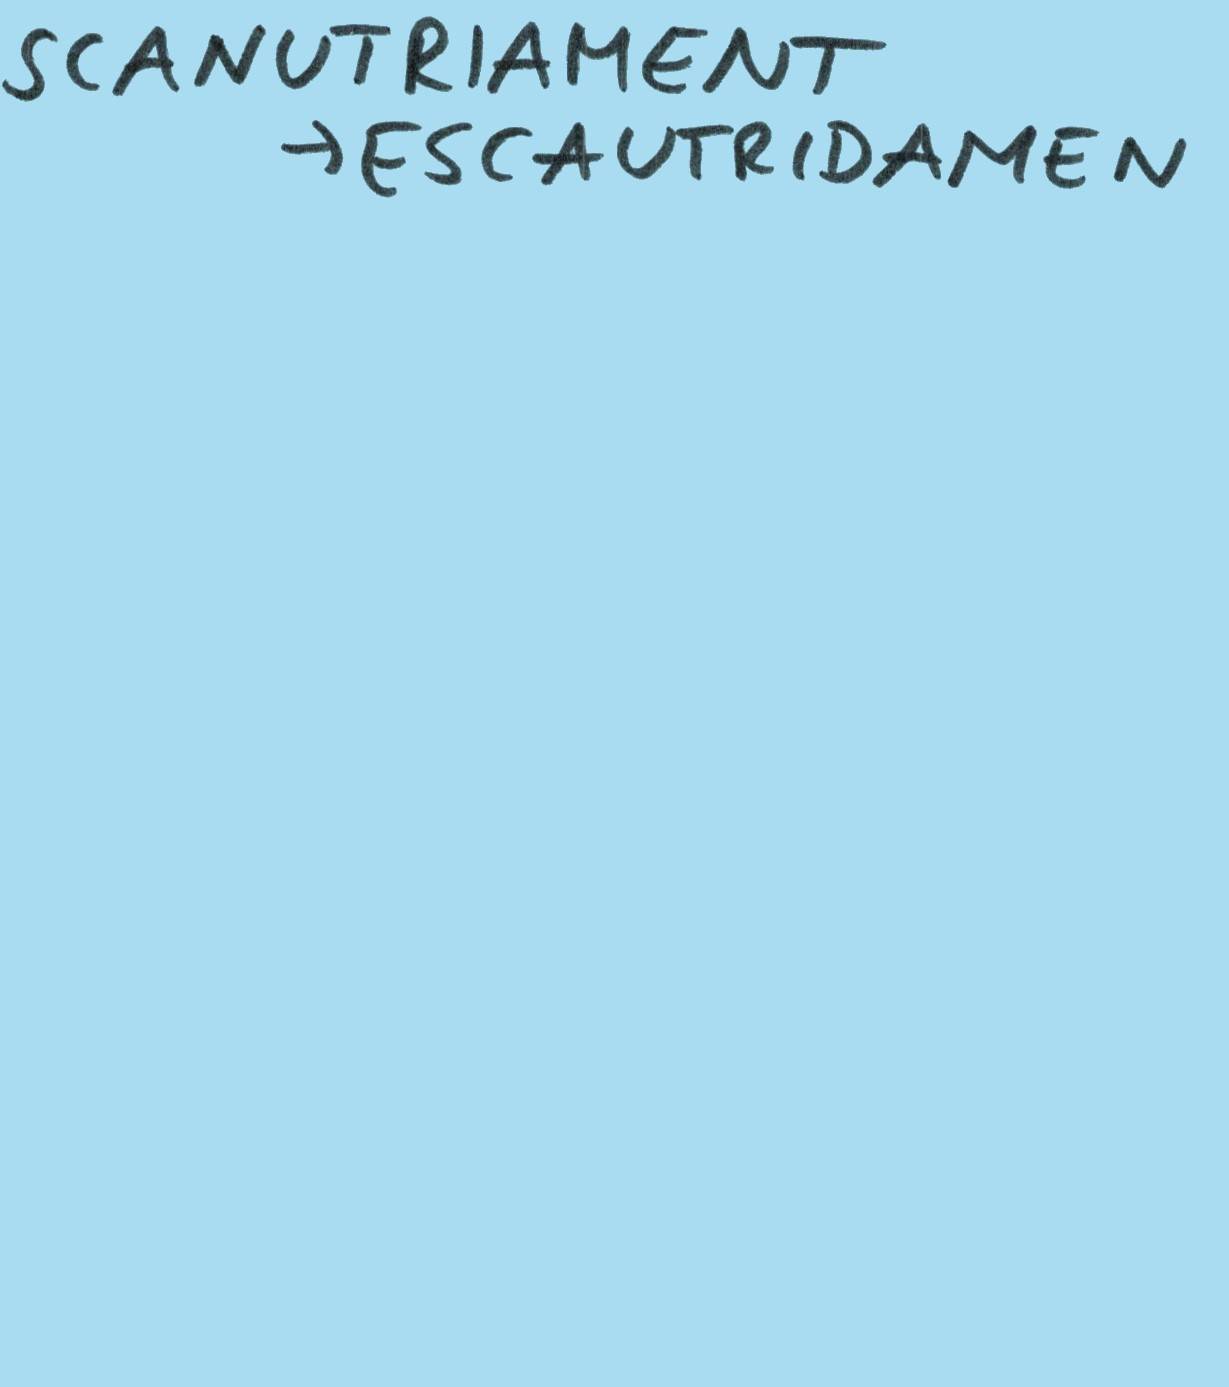 SCANUTRIAMENT
→ESCAUTRIDAMEN